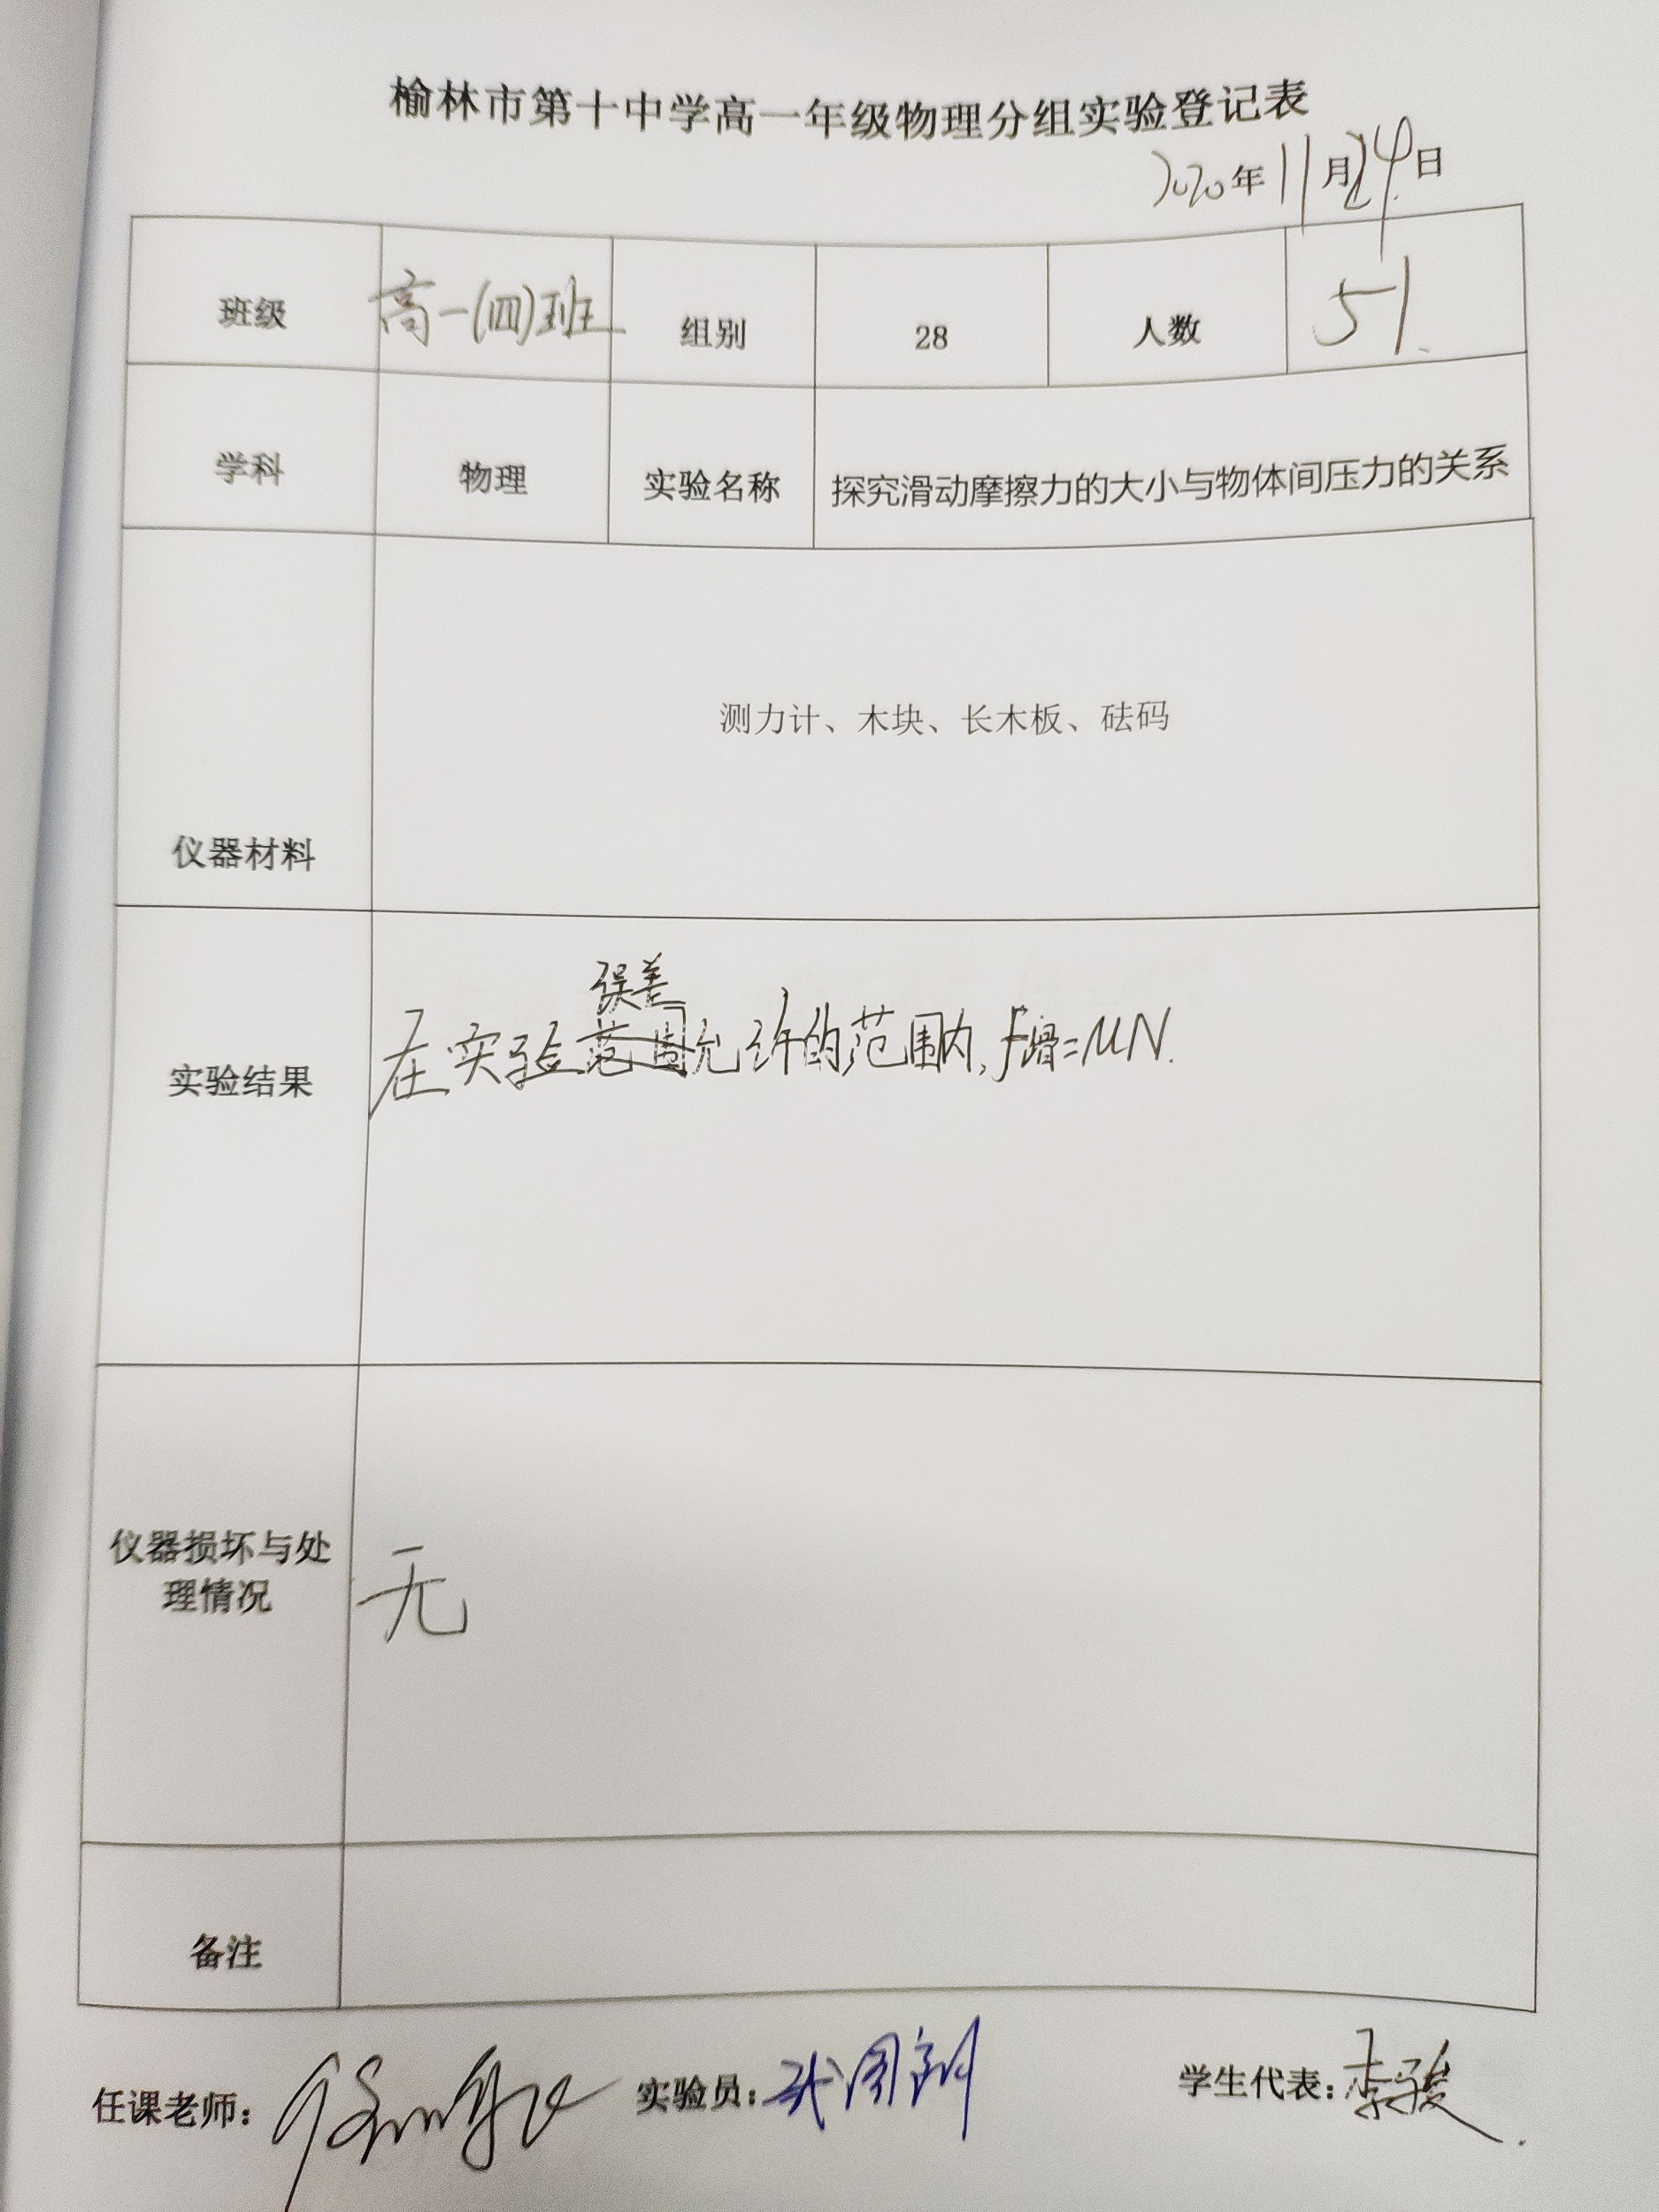 榆林市第十中学高一年级物理分组实验登记表
2020年11月24日
班级 高一(四)班 组别 28 人数 51
学科 物理 实验名称 探究滑动摩擦力的大小与物体间压力的关系
仪器材料 测力计、木块、长木板、砝码
误差
实验结果 在实验范围允许的范围内,f滑=μN.
仪器损坏与处
理情况 无
备注
任课老师: 实验员: 学生代表:李骏